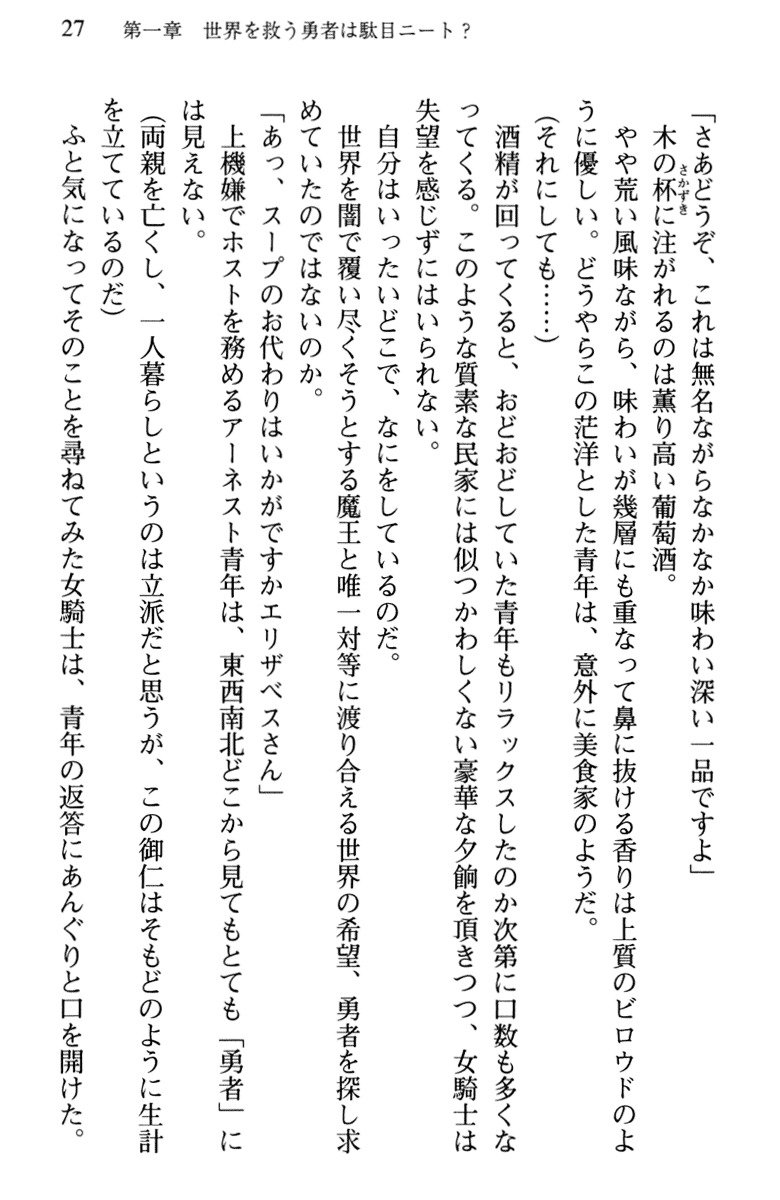 27　第一章　世界を救う勇者は駄目ニート？
「さあどうぞ、これは無名ながらなかなか味わい深い一品ですよ」
　木の杯に注がれるのは薫り高い葡萄酒。
さかずき
　やや荒い風味ながら、味わいが幾層にも重なって鼻に抜ける香りは上質のビロウドのよ
うに優しい。どうやらこの茫洋とした青年は、意外に美食家のようだ。
（それにしても……）
　酒精が回ってくると、おどおどしていた青年もリラックスしたのか次第に口数も多くな
ってくる。このような質素な民家には似つかわしくない豪華な夕餉を頂きつつ、女騎士は
失望を感じずにはいられない。
　自分はいったいどこで、なにをしているのだ。
　世界を闇で覆い尽くそうとする魔王と唯一対等に渡り合える世界の希望、勇者を探し求
めていたのではないのか。
「あっ、スープのお代わりはいかがですかエリザベスさん」
　上機嫌でホストを務めるアーネスト青年は、東西南北どこから見てもとても「勇者」に
は見えない。
（両親を亡くし、一人暮らしというのは立派だと思うが、この御仁はそもどのように生計
を立てているのだ）
　ふと気になってそのことを尋ねてみた女騎士は、青年の返答にあんぐりと口を開けた。